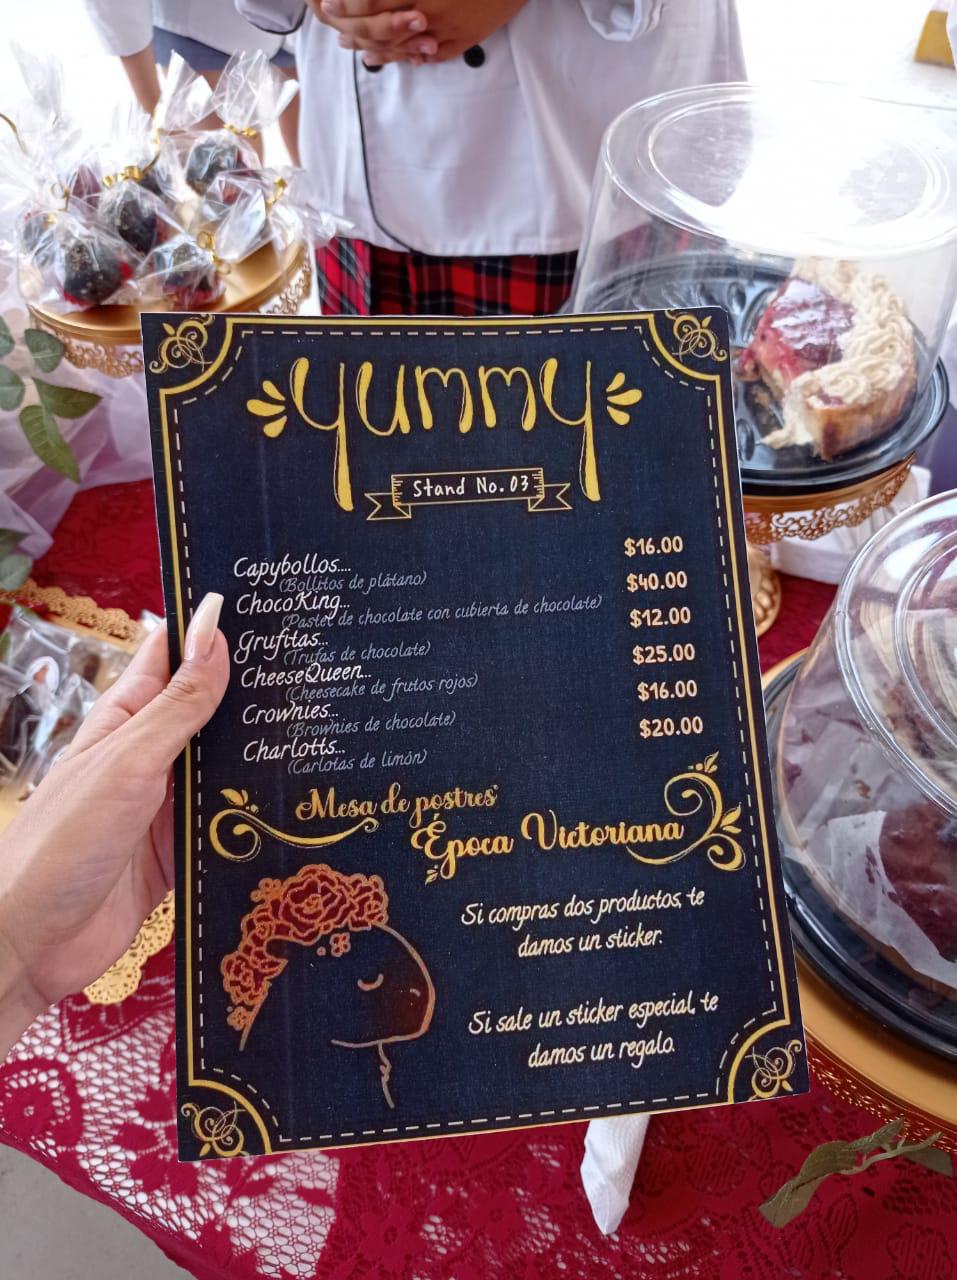 yummy
Stand No. 03
Capybollos.... $16.00
(Bollitos de plátano)
ChocoKing... $40.00
(Pastel de chocolate con cubierta de chocolate)
Grufitas... $12.00
(Trufas de chocolate)
CheeseQueen... $25.00
(Cheesecake de frutos rojos)
Crownies... $16.00
(Brownies de chocolate)
Charlotts... $20.00
(Carlotas de limón)
"Mesa de postres"
Época Victoriana
Si compras dos productos, te
damos un sticker.
Si sale un sticker especial, te
damos un regalo.